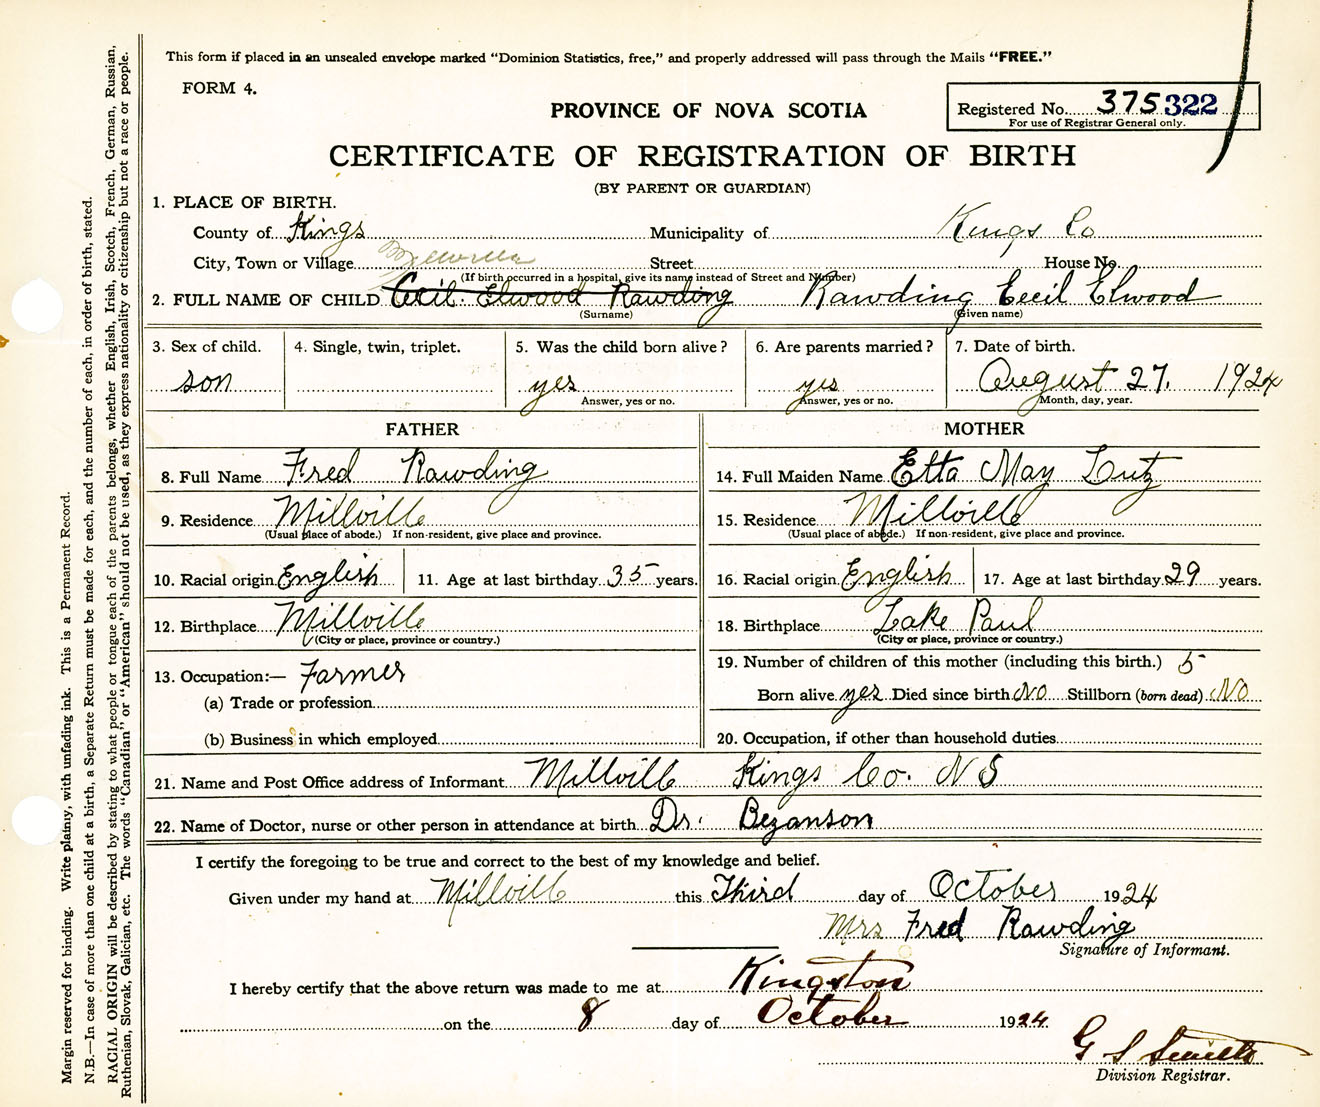 This form if placed in an unsealed envelope marked "Dominion Statistics, free," and properly addressed will pass through the Mails "FREE."
FORM 4.
PROVINCE OF NOVA SCOTIA
Registered No. 375322
For use of Registrar General only.
CERTIFICATE OF REGISTRATION OF BIRTH
(BY PARENT OR GUARDIAN)
1. PLACE OF BIRTH.
County of Kings Municipality of Kings Co
City, Town or Village Street House No.
(If birth occurred in a hospital, give its name instead of Street and Number)
2. FULL NAME OF CHILD Cecil Elwood Rawding Rawding Cecil Elwood
(Surname) (Given name)
3. Sex of child. 4. Single, twin, triplet. 5. Was the child born alive? 6. Are parents married? 7. Date of birth.
son yes yes August 27. 1924
Answer, yes or no. Answer, yes or no. Month, day, year.
FATHER
8. Full Name Fred Rawding
9. Residence Millville
(Usual place of abode.) If non-resident, give place and province.
10. Racial origin English 11. Age at last birthday 35 years.
12. Birthplace Millville
(City or place, province or country.)
13. Occupation:— Farmer
(a) Trade or profession
(b) Business in which employed
MOTHER
14. Full Maiden Name Etta May Lutz
15. Residence Millville
(Usual place of abode.) If non-resident, give place and province.
16. Racial origin English 17. Age at last birthday 29 years.
18. Birthplace Lake Paul
(City or place, province or country.)
19. Number of children of this mother (including this birth.) 5
Born alive yes Died since birth No Stillborn (born dead) No
20. Occupation, if other than household duties
21. Name and Post Office address of Informant Millville Kings Co. N S
22. Name of Doctor, nurse or other person in attendance at birth Dr. Bezanson
I certify the foregoing to be true and correct to the best of my knowledge and belief.
Given under my hand at Millville this Third day of October 1924
Mrs Fred Rawding
Signature of Informant.
I hereby certify that the above return was made to me at Kingston
on the 8 day of October 1924
G S
Division Registrar.
Margin reserved for binding. Write plainly, with unfading ink. This is a Permanent Record.
N.B.—In case of more than one child at a birth, a Separate Return must be made for each, and the number of each, in order of birth, stated.
RACIAL ORIGIN will be described by stating to what people or tongue each of the parents belongs, whether English, Irish, Scotch, French, German, Russian,
Ruthenian, Slovak, Galician, etc. The words "Canadian" or "American" should not be used, as they express nationality or citizenship but not a race or people.